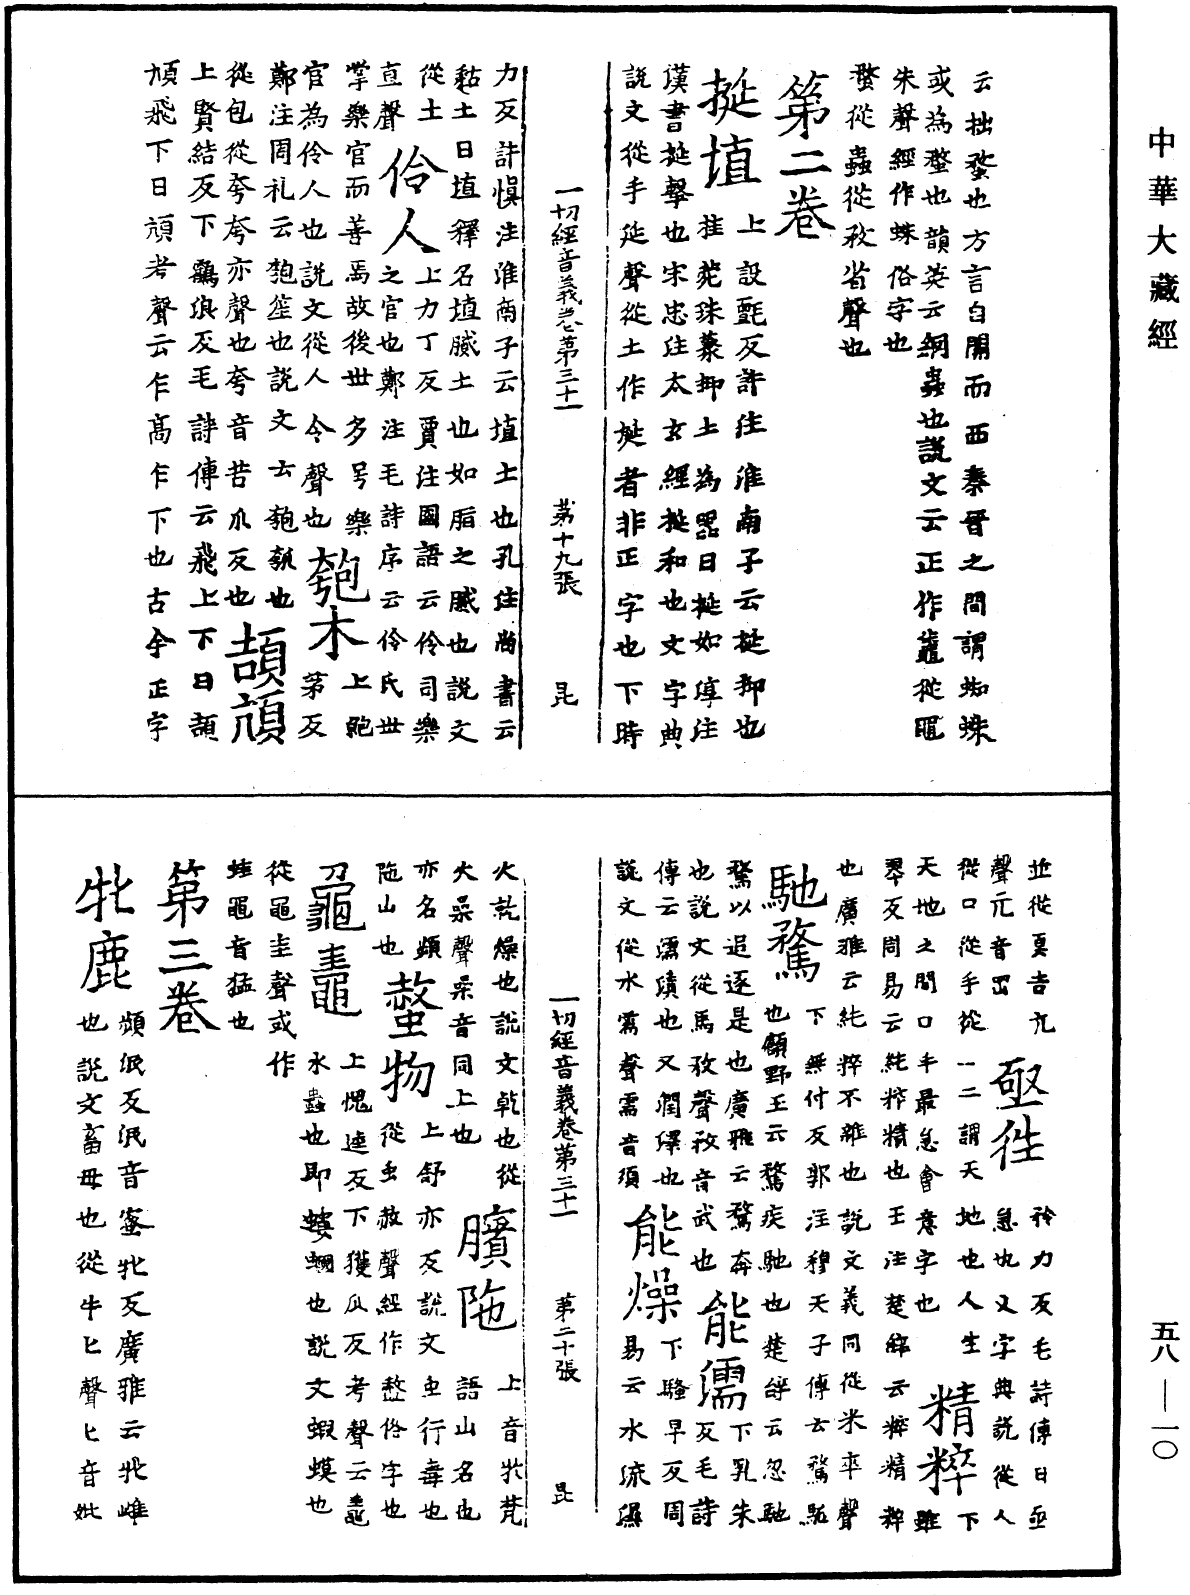 中華大藏經
云拙蝥也方言自關而西秦晉之間謂蜘蛛
或為蝥也韻英云網蟲也說文云正作鼄從黽
朱聲經作蛛俗字也
蝥從蟲從敄省聲也
第二卷
挻埴 上設氈反許注淮南子云挻抑也
桂苑珠叢抑土為器曰挻如淳注
漢書挻擊也宋忠注太玄經挻和也文字典
說文從手延聲從土作埏者非正字也下時
一切經音義卷第三十一 第十九張 昆
力反許慎注淮南子云埴土也孔注尚書云
黏土曰埴釋名埴膩土也如脂之膩也說文
從土直聲
伶人 上力丁反賈注國語云伶司樂
之官也鄭注毛詩序云伶氏世
掌樂官而善焉故後世多号樂
官為伶人也說文從人令聲也
匏木 上鮑茅反
鄭注周礼云匏笙也說文云匏瓠也
從包從夸夸亦聲也夸音苦瓜反也
頡頏
上賢結反下鶴浪反毛詩傳云飛上下曰頡
頏飛下曰頏考聲云乍高乍下也古今正字
並從頁吉亢
聲亢音罡
亟徃 矜力反毛詩傳曰亟
急也又字典說從人
從口從手從一二謂天地也人生
天地之間口手最急會意字也
精粹 下雖
翠反周易云純粹精也王注楚辭云粹精粹
也廣雅云純粹不雜也說文義同從米卒聲
馳騖 下無付反郭注穆天子傳云騖馳
也顧野王云騖疾馳也楚辞云忽馳
騖以追逐是也廣雅云騖奔
也說文從馬敄聲敄音武也
能濡 下乳朱反毛詩
傳云濡漬也又潤澤也
說文從水需聲需音須
能燥 下騷早反周
易云水流濕
一切經音義卷第三十一 第二十張 昆
火就燥也說文乾也從
火喿聲喿音同上也
臏陁 上音牝梵
語山名也
亦名頻
陁山也
螫物 上舒亦反說文虫行毒也
從虫赦聲經作蜇俗字也
龜鼃 上愧逵反下獲瓜反考聲云鼃
水蟲也即螻蟈也說文蝦蟆也
從黽圭聲或作
蛙黽音猛也
第三卷
牝鹿 頻泯反泯音蜜牝反廣雅云牝雌
也說文畜母也從牛匕聲匕音妣
五八—一〇